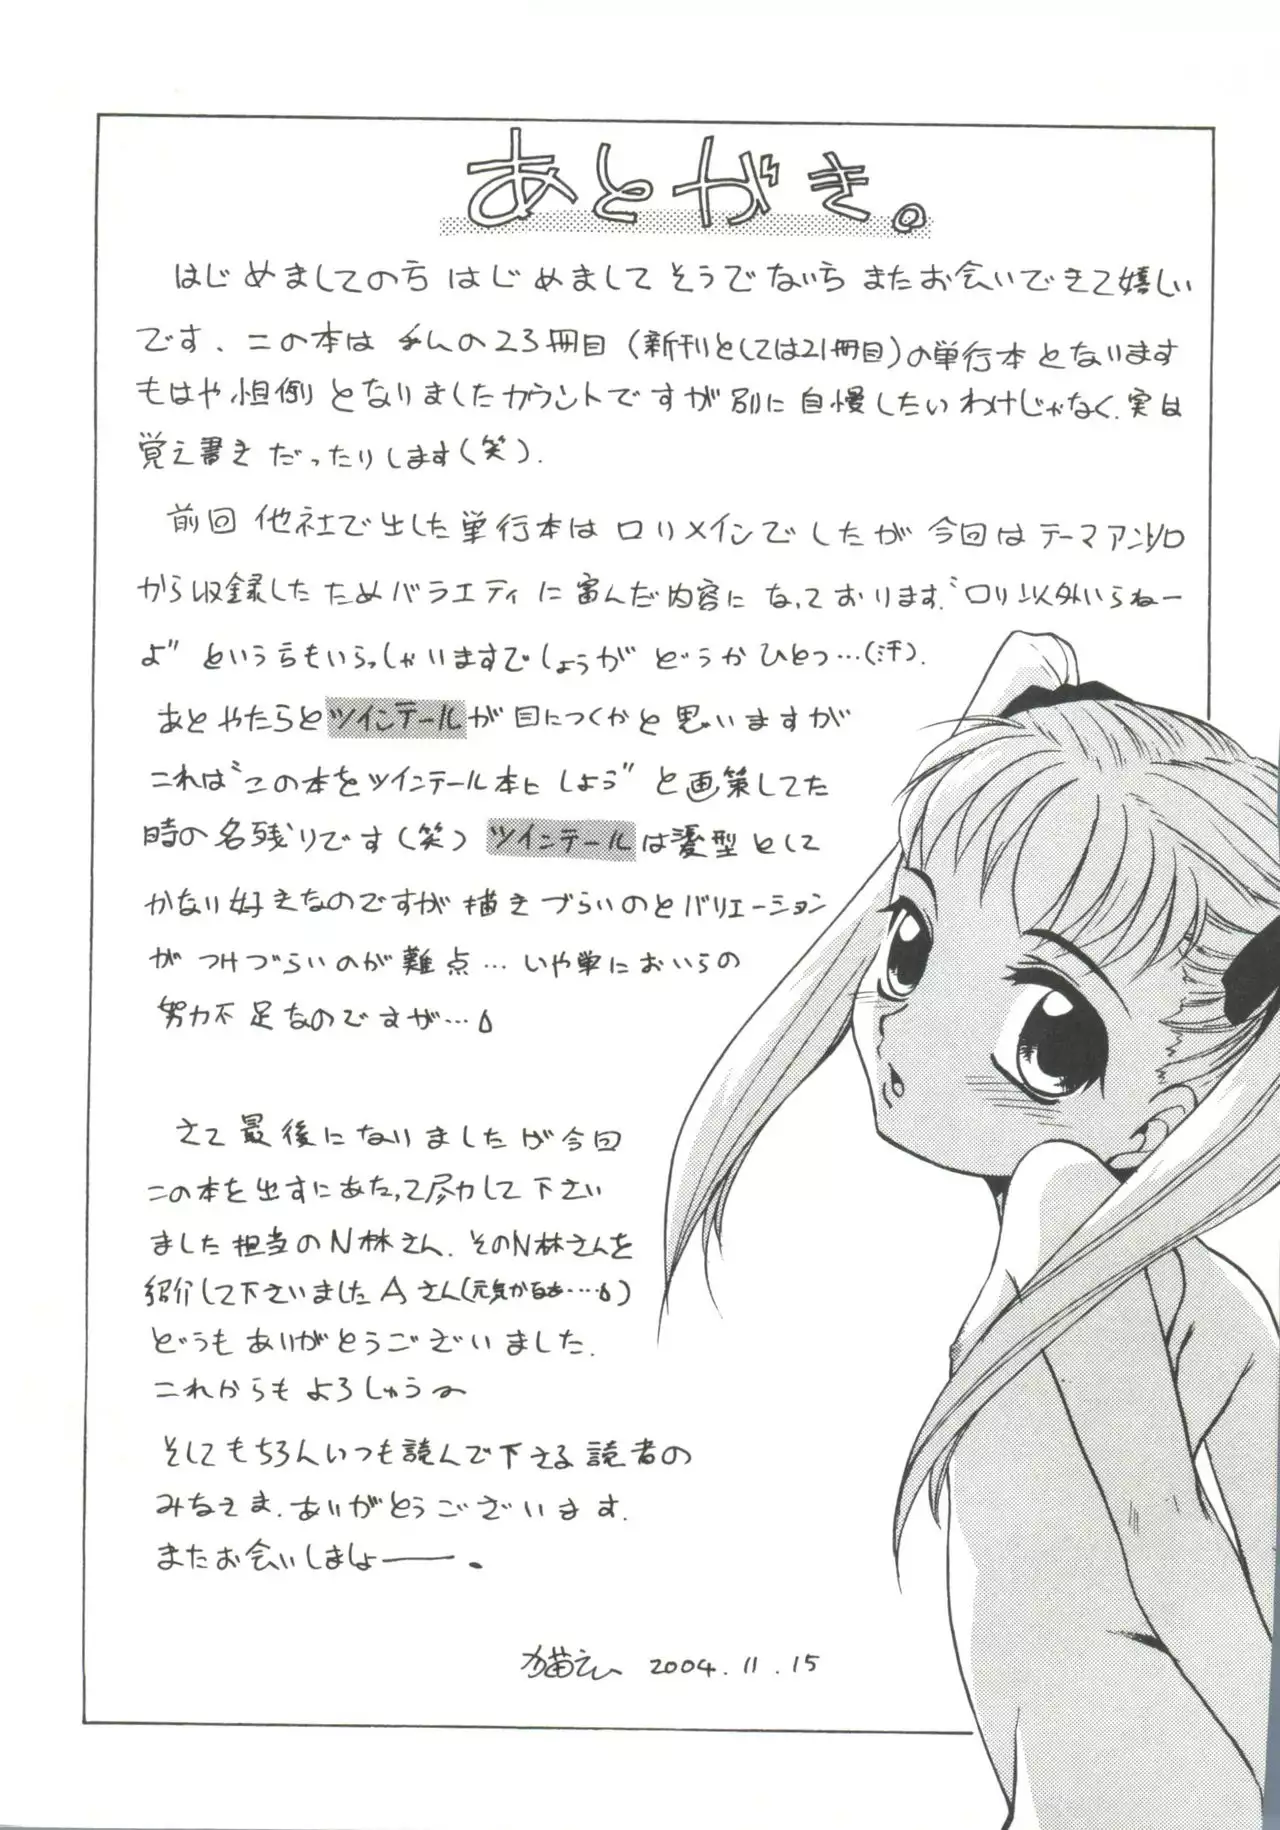 あとがき。
はじめましての方 はじめまして そうでない方 またお会いできて嬉しい
です。この本は 私の23冊目(新刊としては21冊目)の単行本となります
もはや恒例となりましたカウントですが別に自慢したいわけじゃなく、実は
覚え書きだったりします(笑)。
前回他社で出した単行本はロリメインでしたが今回はテーマアンソロ
から収録したためバラエティに富んだ内容になっております。“ロリ以外いらねー
よ”という方もいらっしゃいますでしょうがどうかひとつ…(汗)。
あとやたらとツインテールが目につくかと思いますが
これは“この本をツインテール本にしよう”と画策してた
時の名残りです(笑)ツインテールは髪型として
かなり好きなのですが描きづらいのとバリエーション
がつけづらいのが難点…いや単においらの
努力不足なのですが…
さて最後になりましたが今回
この本を出すにあたって尽力して下さい
ました担当のN林さん、そのN林さんを
紹介して下さいましたAさん(元気かなぁ…)
どうもありがとうございました。
これからもよろしゅう〜
そしてもちろんいつも読んで下さる読者の
みなさま、ありがとうございます。
またお会いしましょーー。
2004.11.15